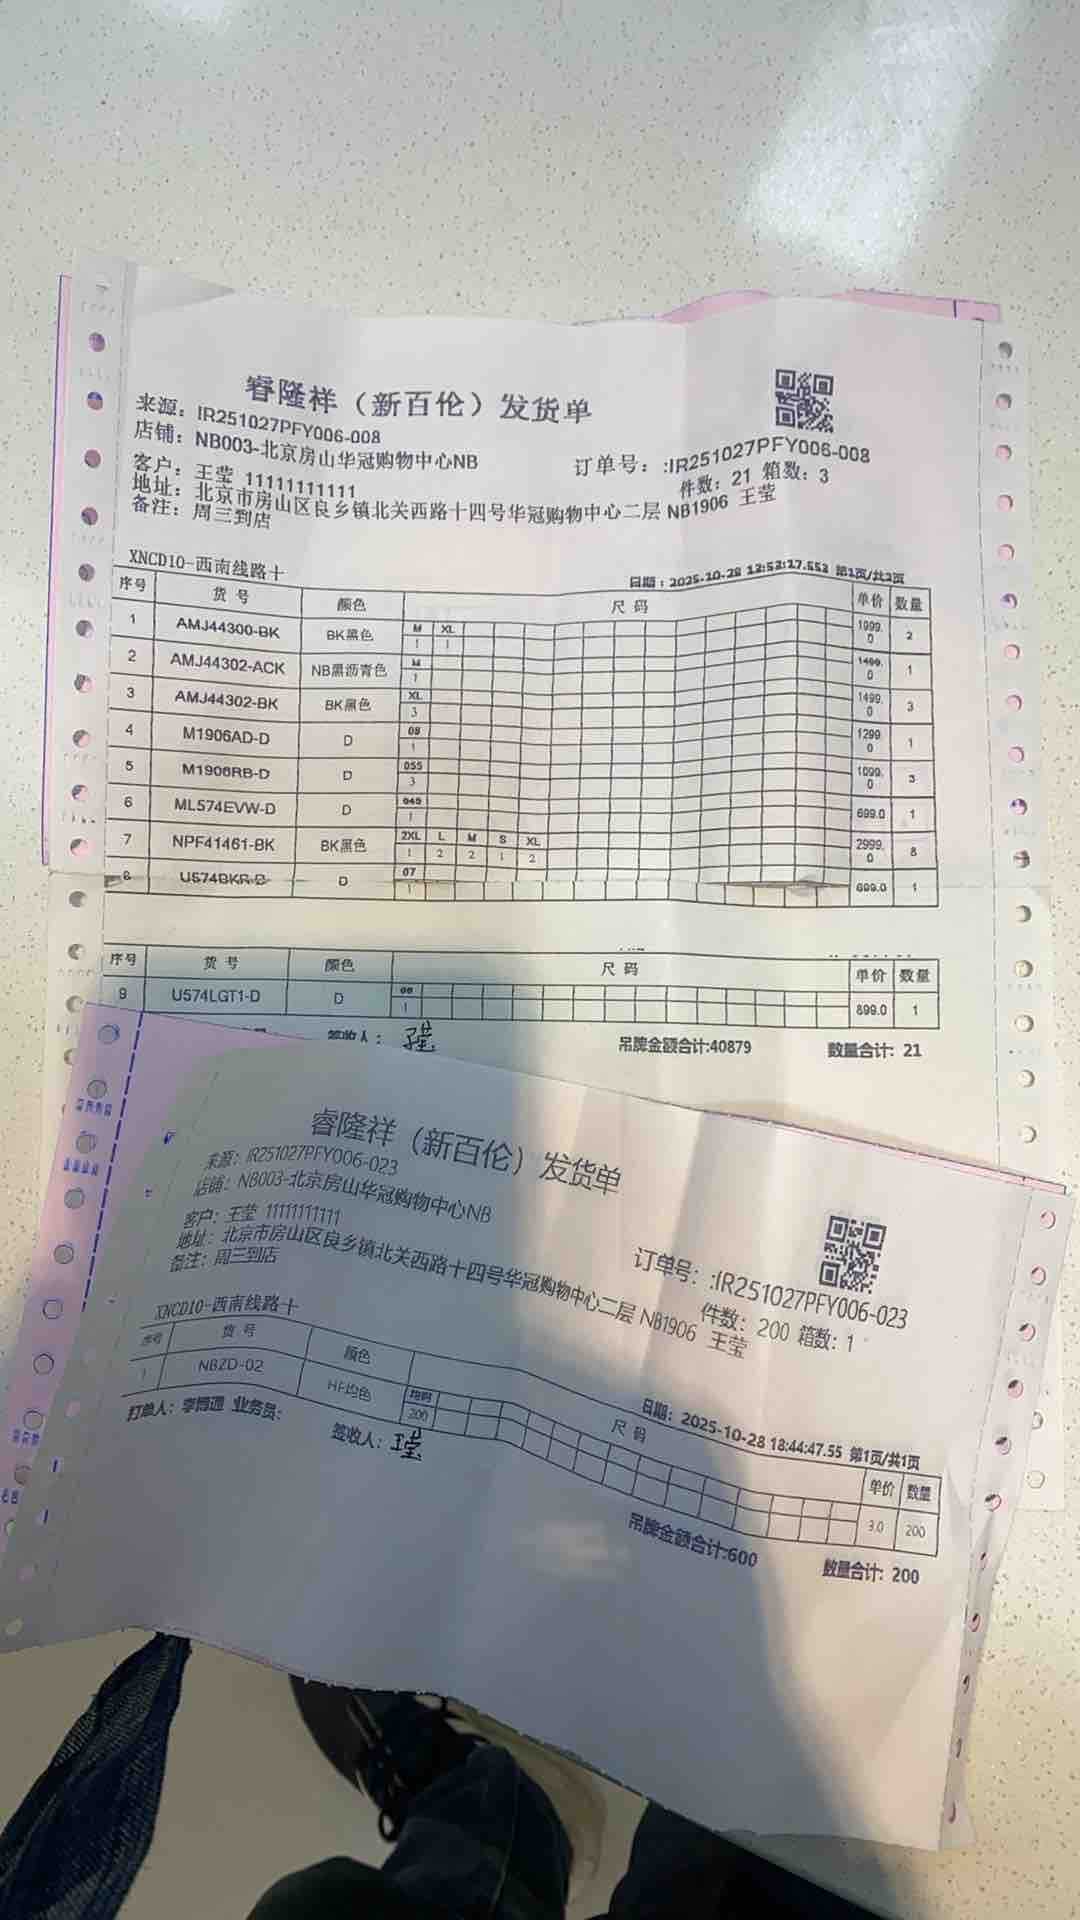 睿隆祥（新百伦）发货单
来源：IR251027PFY006-008
店铺：NB003-北京房山华冠购物中心NB
订单号：:IR251027PFY006-008
客户：王莹 11111111111
件数：21 箱数：3
地址：北京市房山区良乡镇北关西路十四号华冠购物中心二层 NB1906 王莹
备注：周三到店
XNCD10-西南线路十
日期：2025-10-28 第1页/共2页
序号 货 号 颜色 尺 码 单价 数量
M XL
1 AMJ44300-BK BK黑色 1 1 1999.0 2
M
2 AMJ44302-ACK NB黑沥青色 1 1499.0 1
XL
3 AMJ44302-BK BK黑色 3 1499.0 3
08
4 M1906AD-D D 1 1299.0 1
055
5 M1906RB-D D 3 1099.0 3
045
6 ML574EVW-D D 1 699.0 1
2XL L M S XL
7 NPF41461-BK BK黑色 1 2 2 1 2 2999.0 8
07
8 U574BKR-D D 1 699.0 1
序号 货 号 颜色 尺 码 单价 数量
9 U574LGT1-D D 1 899.0 1
签收人：王莹
吊牌金额合计:40879 数量合计：21
睿隆祥（新百伦）发货单
来源：IR251027PFY006-023
店铺：NB003-北京房山华冠购物中心NB
订单号：:IR251027PFY006-023
客户：王莹 11111111111
件数：200 箱数：1
地址：北京市房山区良乡镇北关西路十四号华冠购物中心二层 NB1906 王莹
备注：周三到店
XNCD10-西南线路十
日期：2025-10-28 18:44:47.55 第1页/共1页
序号 货 号 颜色 尺 码 单价 数量
均码
1 NBZD-02 HF均色 200 3.0 200
打单人：李博通 业务员：
签收人：王莹
吊牌金额合计:600 数量合计：200